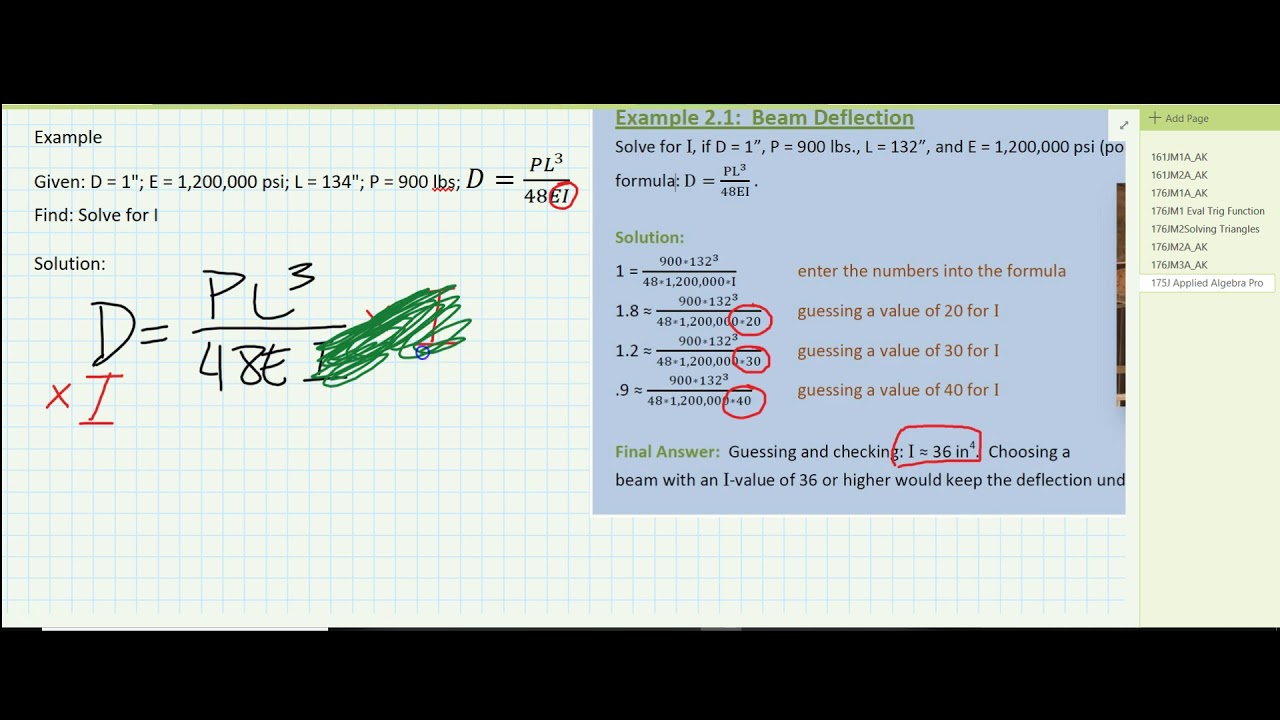 Example
Given: D = 1"; E = 1,200,000 psi; L = 134"; P = 900 lbs; D = PL³/48EI
Find: Solve for I
Solution:
D = PL³/48EI
× I
× I
Example 2.1: Beam Deflection
Solve for I, if D = 1”, P = 900 lbs., L = 132”, and E = 1,200,000 psi (po
formula: D = PL³/48EI .
Solution:
1 = 900*132³/48*1,200,000*I enter the numbers into the formula
1.8 ≈ 900*132³/48*1,200,000*20 guessing a value of 20 for I
1.2 ≈ 900*132³/48*1,200,000*30 guessing a value of 30 for I
.9 ≈ 900*132³/48*1,200,000*40 guessing a value of 40 for I
Final Answer: Guessing and checking: I ≈ 36 in⁴. Choosing a
beam with an I-value of 36 or higher would keep the deflection und
+ Add Page
161JM1A_AK
161JM2A_AK
176JM1A_AK
176JM1 Eval Trig Function
176JM2Solving Triangles
176JM2A_AK
176JM3A_AK
175J Applied Algebra Pro